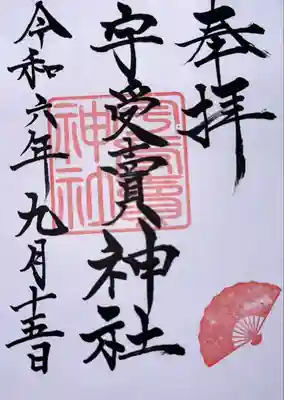 奉拝
宇受賣神社
宇受賣
神社
令和六年九月十五日